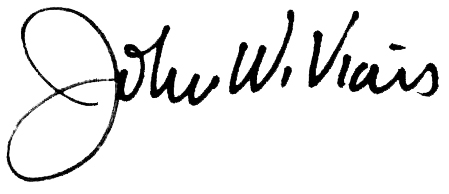 John W. Viais